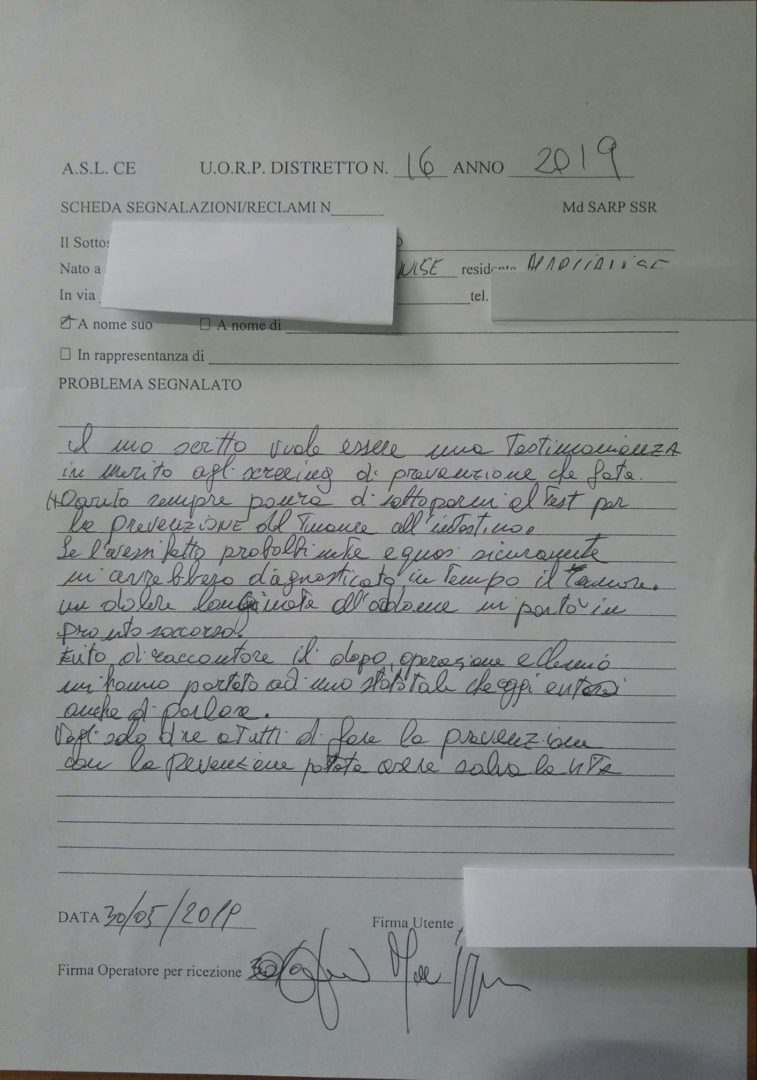 A.S.L. CE U.O.R.P. DISTRETTO N. 16 ANNO 2019
SCHEDA SEGNALAZIONI/RECLAMI N______ Md SARP SSR
Il Sottos
Nato a NISE residente
In via tel.
A nome suo A nome di
In rappresentanza di
PROBLEMA SEGNALATO
Il mio scritto vuole essere una Testimonianza
in merito agli screeing di prevenzione che fate.
Ho avuto sempre paura di sottopormi al Test per
la PREVENZIONE del Tumore all'intestino.
Se l'avessi fatto probabilmente e quasi sicuramente
mi avrebbero diagnosticato in Tempo il Tumore.
un dolore lancinate all'addome mi portò in
pronto soccorso.
Evito di raccontare il dopo, operazione e chemio
mi hanno portato ad uno stato tale che oggi evito
anche di parlare.
Voglio solo dire a Tutti di fare la prevenzione
con la Prevenzione potete avere salva la vita
DATA 30/05/2019 Firma Utente
Firma Operatore per ricezione